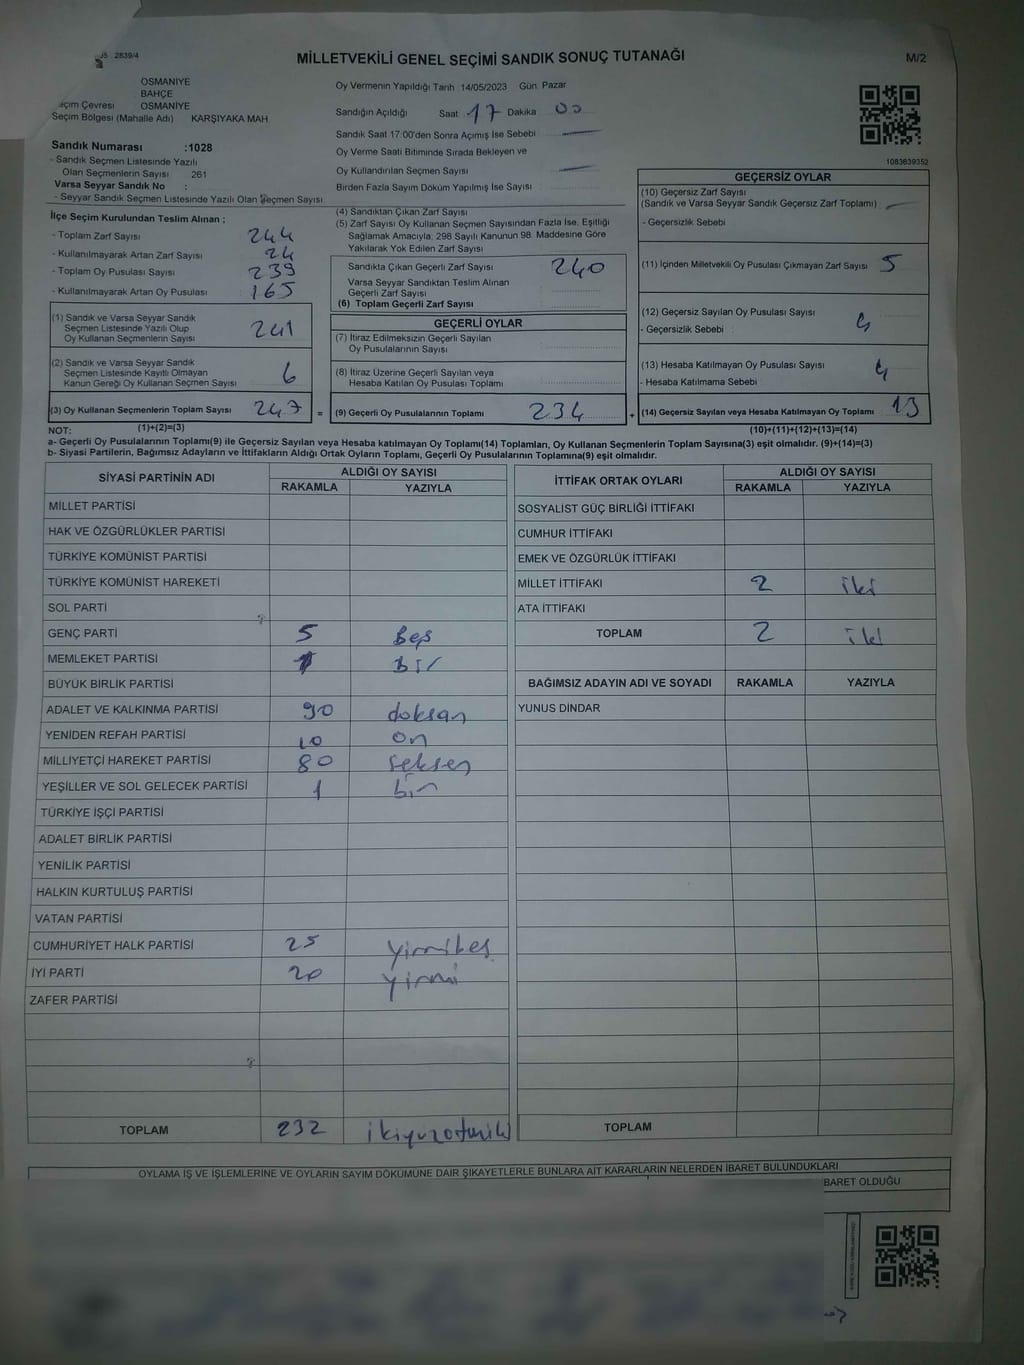 2839/4
MİLLETVEKİLİ GENEL SEÇİMİ SANDIK SONUÇ TUTANAĞI
M/2
OSMANİYE
BAHÇE
Seçim Çevresi OSMANİYE
Seçim Bölgesi (Mahalle Adı) KARŞIYAKA MAH
Oy Vermenin Yapıldığı Tarih :14/05/2023 Gün: Pazar
Sandığın Açıldığı Saat 17 Dakika 00
Sandık Saat 17:00'den Sonra Açımış İse Sebebi
Oy Verme Saati Bitiminde Sırada Bekleyen ve
Oy Kullandırılan Seçmen Sayısı
Birden Fazla Sayım Döküm Yapılmış İse Sayısı
1083639352
Sandık Numarası :1028
- Sandık Seçmen Listesinde Yazılı
Olan Seçmenlerin Sayısı 261
Varsa Seyyar Sandık No :
- Seyyar Sandık Seçmen Listesinde Yazılı Olan Seçmen Sayısı
İlçe Seçim Kurulundan Teslim Alınan ;
- Toplam Zarf Sayısı 244
- Kullanılmayarak Artan Zarf Sayısı 24
- Toplam Oy Pusulası Sayısı 239
- Kullanılmayarak Artan Oy Pusulası 165
(1) Sandık ve Varsa Seyyar Sandık
Seçmen Listesinde Yazılı Olup
Oy Kullanan Seçmenlerin Sayısı 241
(2) Sandık ve Varsa Seyyar Sandık
Seçmen Listesinde Kayıtlı Olmayan
Kanun Gereği Oy Kullanan Seçmen Sayısı 6
(3) Oy Kullanan Seçmenlerin Toplam Sayısı 247 =
(4) Sandıktan Çıkan Zarf Sayısı
(5) Zarf Sayısı Oy Kullanan Seçmen Sayısından Fazla İse, Eşitliği
Sağlamak Amacıyla; 298 Sayılı Kanunun 98. Maddesine Göre
Yakılarak Yok Edilen Zarf Sayısı
Sandıkta Çıkan Geçerli Zarf Sayısı 240
Varsa Seyyar Sandıktan Teslim Alınan
Geçerli Zarf Sayısı
(6) Toplam Geçerli Zarf Sayısı
GEÇERLİ OYLAR
(7) İtiraz Edilmeksizin Geçerli Sayılan
Oy Pusulalarının Sayısı
(8) İtiraz Üzerine Geçerli Sayılan veya
Hesaba Katılan Oy Pusulası Toplamı
(9) Geçerli Oy Pusulalarının Toplamı 234 +
GEÇERSİZ OYLAR
(10) Geçersiz Zarf Sayısı
(Sandık ve Varsa Seyyar Sandık Geçersiz Zarf Toplamı)
- Geçersizlik Sebebi :
(11) İçinden Milletvekili Oy Pusulası Çıkmayan Zarf Sayısı 5
(12) Geçersiz Sayılan Oy Pusulası Sayısı 4
- Geçersizlik Sebebi :
(13) Hesaba Katılmayan Oy Pusulası Sayısı 4
- Hesaba Katılmama Sebebi :
(14) Geçersiz Sayılan veya Hesaba Katılmayan Oy Toplamı 13
NOT: (1)+(2)=(3) (10)+(11)+(12)+(13)=(14)
a- Geçerli Oy Pusulalarının Toplamı(9) ile Geçersiz Sayılan veya Hesaba katılmayan Oy Toplamı(14) Toplamları, Oy Kullanan Seçmenlerin Toplam Sayısına(3) eşit olmalıdır. (9)+(14)=(3)
b- Siyasi Partilerin, Bağımsız Adayların ve İttifakların Aldığı Ortak Oyların Toplamı, Geçerli Oy Pusulalarının Toplamına(9) eşit olmalıdır.
SİYASİ PARTİNİN ADI ALDIĞI OY SAYISI
RAKAMLA YAZIYLA
MİLLET PARTİSİ
HAK VE ÖZGÜRLÜKLER PARTİSİ
TÜRKİYE KOMÜNİST PARTİSİ
TÜRKİYE KOMÜNİST HAREKETİ
SOL PARTİ
GENÇ PARTİ 5 Beş
MEMLEKET PARTİSİ 1 bir
BÜYÜK BİRLİK PARTİSİ
ADALET VE KALKINMA PARTİSİ 90 doksan
YENİDEN REFAH PARTİSİ 10 on
MİLLİYETÇİ HAREKET PARTİSİ 80 seksen
YEŞİLLER VE SOL GELECEK PARTİSİ 1 bir
TÜRKİYE İŞÇİ PARTİSİ
ADALET BİRLİK PARTİSİ
YENİLİK PARTİSİ
HALKIN KURTULUŞ PARTİSİ
VATAN PARTİSİ
CUMHURİYET HALK PARTİSİ 25 yirmibeş
İYİ PARTİ 20 yirmi
ZAFER PARTİSİ
TOPLAM 232 ikiyüzotuziki
İTTİFAK ORTAK OYLARI ALDIĞI OY SAYISI
RAKAMLA YAZIYLA
SOSYALİST GÜÇ BİRLİĞİ İTTİFAKI
CUMHUR İTTİFAKI
EMEK VE ÖZGÜRLÜK İTTİFAKI
MİLLET İTTİFAKI 2 iki
ATA İTTİFAKI
TOPLAM 2 iki
BAĞIMSIZ ADAYIN ADI VE SOYADI RAKAMLA YAZIYLA
YUNUS DİNDAR
TOPLAM
OYLAMA İŞ VE İŞLEMLERİNE VE OYLARIN SAYIM DÖKÜMÜNE DAİR ŞİKAYETLERLE BUNLARA AİT KARARLARIN NELERDEN İBARET BULUNDUKLARI
BARET OLDUĞU